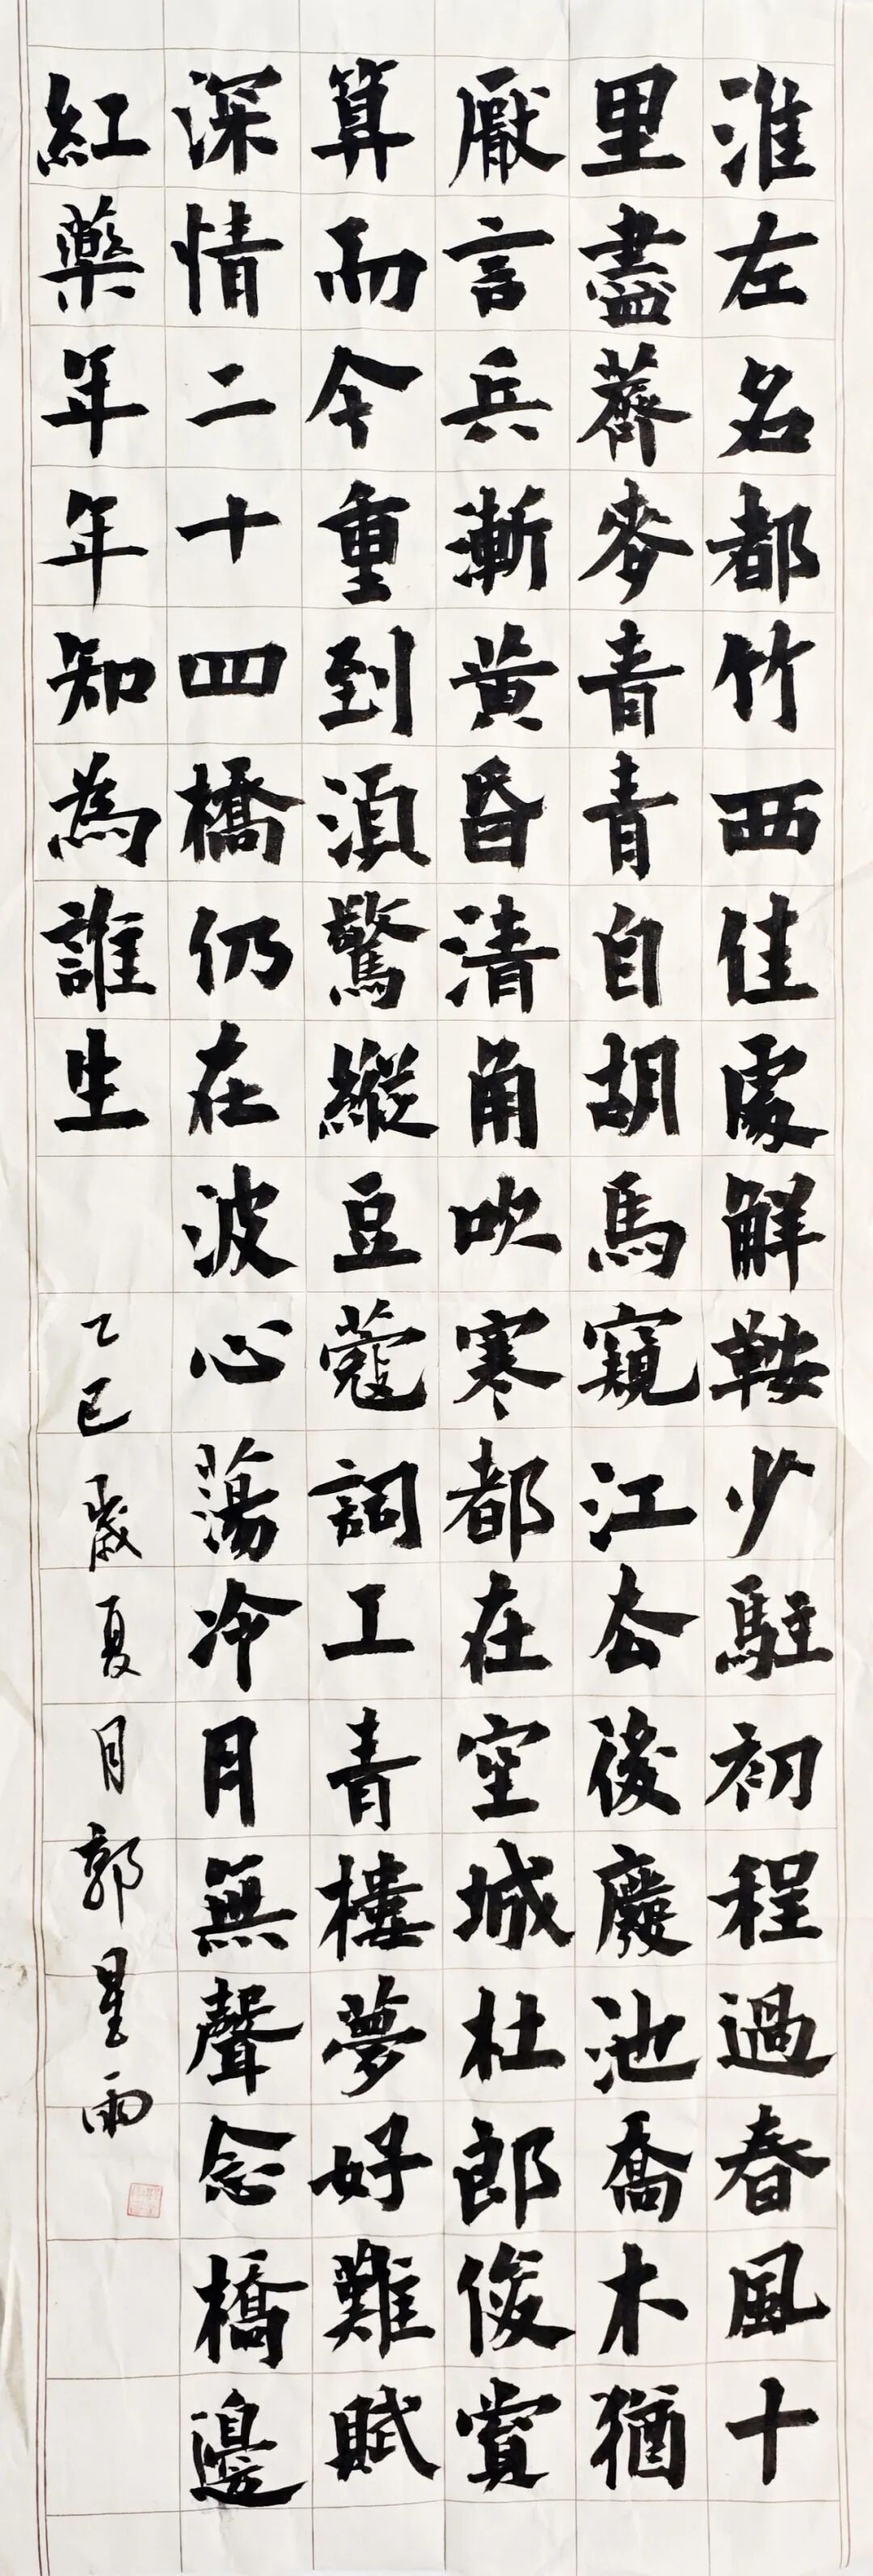 淮左名都竹西佳處解鞍少駐初程過春風十
里盡薺麥青青自胡馬窺江去後廢池喬木猶
厭言兵漸黃昏清角吹寒都在空城杜郎俊賞
算而今重到須驚縱豆蔻詞工青樓夢好難賦
深情二十四橋仍在波心蕩冷月無聲念橋邊
紅藥年年知為誰生
乙巳歲夏月郭星雨